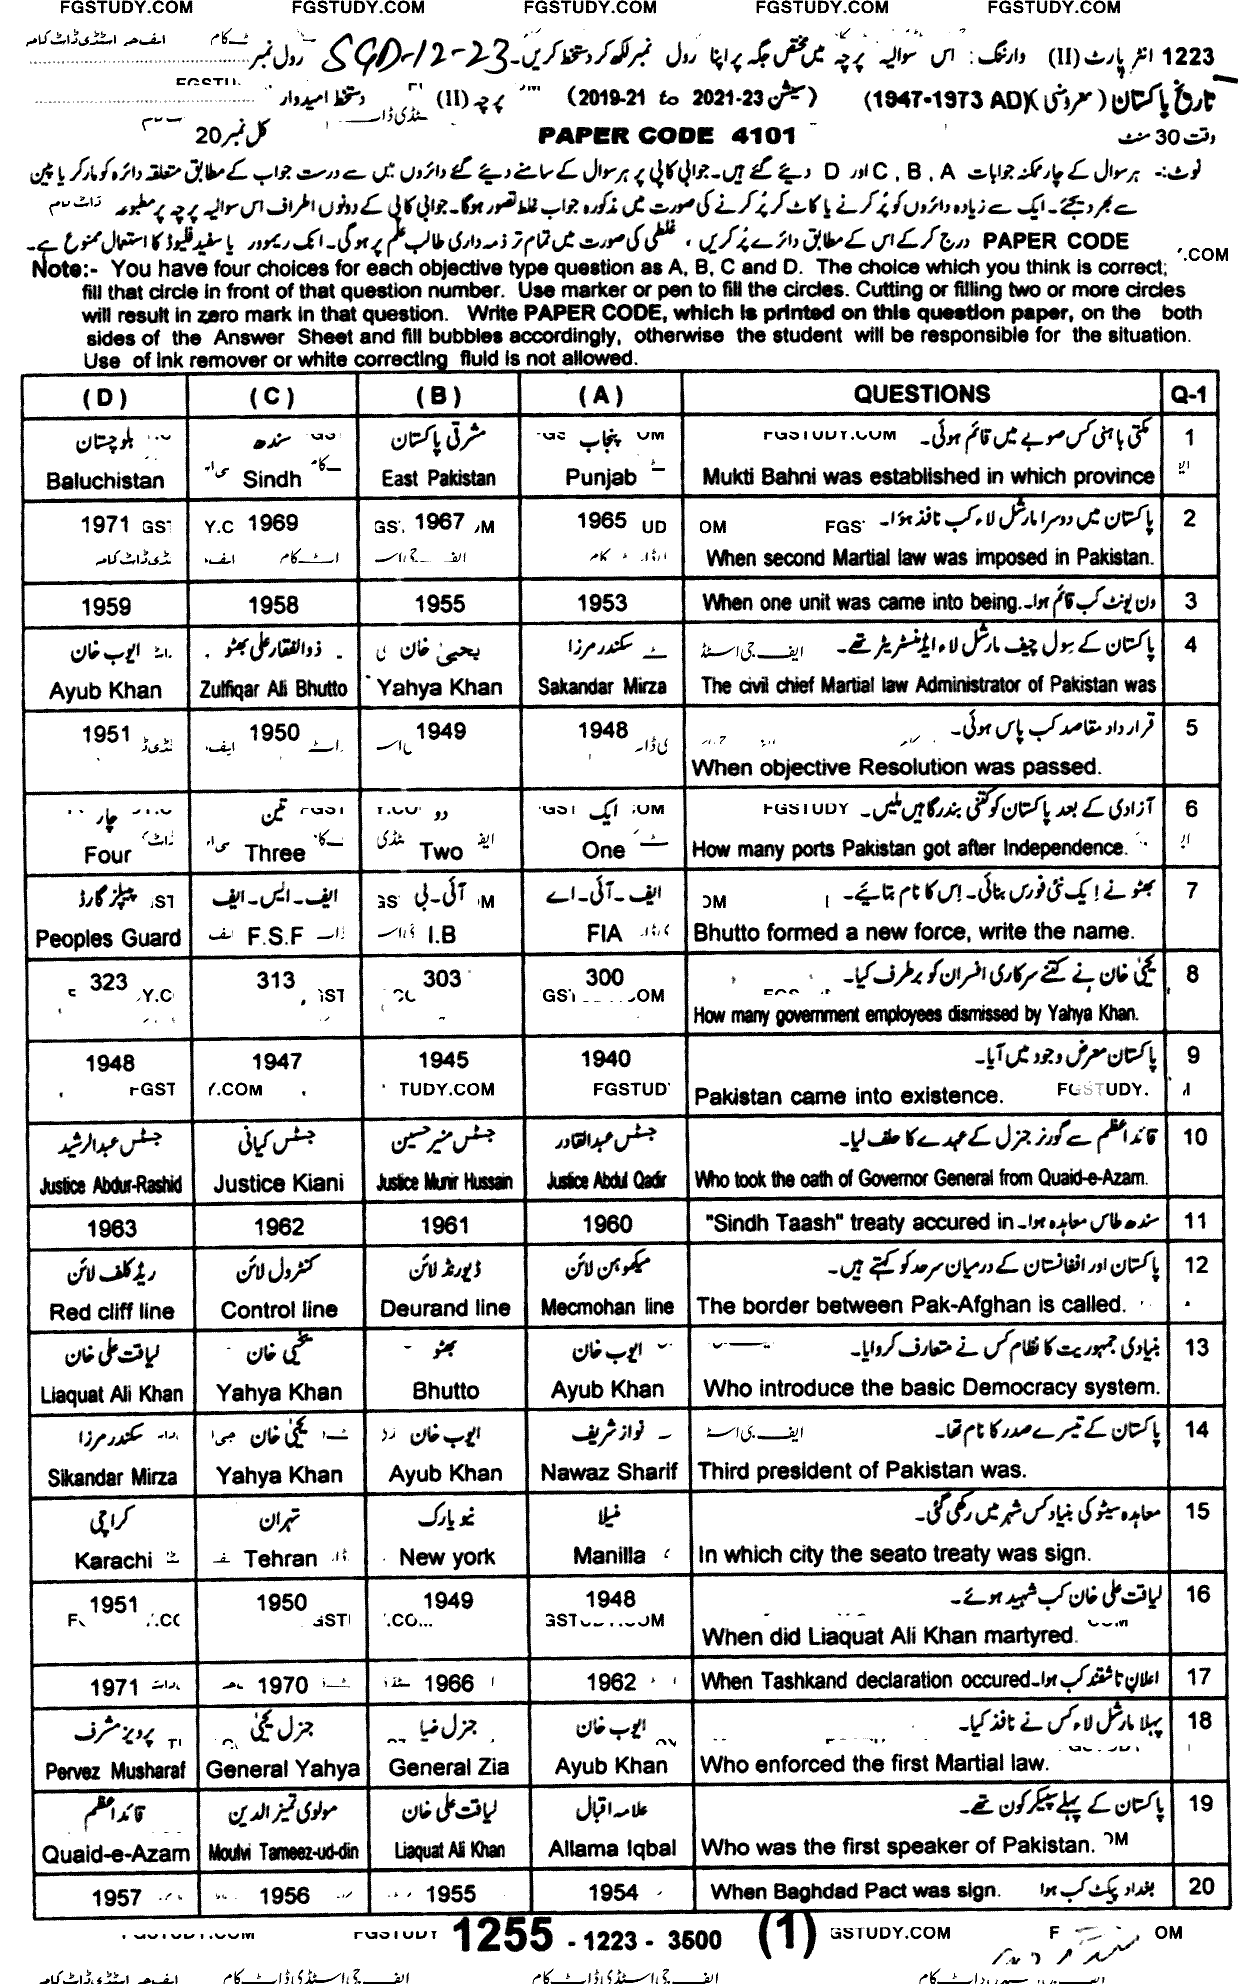 FGSTUDY.COM FGSTUDY.COM FGSTUDY.COM FGSTUDY.COM FGSTUDY.COM
1223 انٹر پارٹ (II) وارننگ: اس سوالیہ پرچہ میں مختص جگہ پر اپنا رول نمبر لکھ کر دستخط کریں۔ SGD-12-23 رول نمبر
تاریخ پاکستان (معروضی) (1947-1973 AD) (سیشن 2019-21 to 2021-23) پرچہ (II) دستخط امیدوار
وقت 30 منٹ PAPER CODE 4101 کل نمبر 20
نوٹ:- ہر سوال کے چار ممکنہ جوابات A , B , C اور D دیئے گئے ہیں۔ جوابی کاپی پر ہر سوال کے سامنے دیئے گئے دائروں میں سے درست جواب کے مطابق متعلقہ دائرہ کو مارکر یا پین
سے بھر دیجئے۔ ایک سے زیادہ دائروں کو پُر کرنے یا کاٹ کر پُر کرنے کی صورت میں مذکورہ جواب غلط تصور ہوگا۔ جوابی کاپی کے دونوں اطراف اس سوالیہ پرچہ پر مطبوعہ
PAPER CODE درج کر کے اس کے مطابق دائرے پُر کریں، غلطی کی صورت میں تمام تر ذمہ داری طالب علم پر ہوگی۔ انک ریموور یا سفید فلیوڈ کا استعمال ممنوع ہے۔
Note:- You have four choices for each objective type question as A, B, C and D. The choice which you think is correct;
fill that circle in front of that question number. Use marker or pen to fill the circles. Cutting or filling two or more circles
will result in zero mark in that question. Write PAPER CODE, which is printed on this question paper, on the both
sides of the Answer Sheet and fill bubbles accordingly, otherwise the student will be responsible for the situation.
Use of ink remover or white correcting fluid is not allowed.
(D) (C) (B) (A) QUESTIONS Q-1
بلوچستان سندھ مشرقی پاکستان پنجاب مکتی باہنی کس صوبے میں قائم ہوئی۔ 1
Baluchistan Sindh East Pakistan Punjab Mukti Bahni was established in which province
1971 1969 1967 1965 پاکستان میں دوسرا مارشل لاء کب نافذ ہوا۔ 2
When second Martial law was imposed in Pakistan.
1959 1958 1955 1953 When one unit was came into being. ون یونٹ کب قائم ہوا۔ 3
ایوب خان ذوالفقار علی بھٹو یحییٰ خان سکندر مرزا پاکستان کے سول چیف مارشل لاء ایڈمنسٹریٹر تھے۔ 4
Ayub Khan Zulfiqar Ali Bhutto Yahya Khan Sakandar Mirza The civil chief Martial law Administrator of Pakistan was
1951 1950 1949 1948 قرارداد مقاصد کب پاس ہوئی۔ 5
When objective Resolution was passed.
چار تین دو ایک آزادی کے بعد پاکستان کو کتنی بندرگاہیں ملیں۔ 6
Four Three Two One How many ports Pakistan got after Independence.
پیپلز گارڈ ایف۔ایس۔ایف آئی۔بی ایف۔آئی۔اے بھٹو نے ایک نئی فورس بنائی۔ اس کا نام بتائیے۔ 7
Peoples Guard F.S.F I.B FIA Bhutto formed a new force, write the name.
323 313 303 300 یحییٰ خان نے کتنے سرکاری افسران کو برطرف کیا۔ 8
How many government employees dismissed by Yahya Khan.
1948 1947 1945 1940 پاکستان معرض وجود میں آیا۔ 9
Pakistan came into existence.
جسٹس عبدالرشید جسٹس کیانی جسٹس منیر حسین جسٹس عبدالقادر قائداعظم سے گورنر جنرل کے عہدے کا حلف لیا۔ 10
Justice Abdur-Rashid Justice Kiani Justice Munir Hussain Justice Abdul Qadir Who took the oath of Governor General from Quaid-e-Azam.
1963 1962 1961 1960 "Sindh Taash" treaty accured in سندھ طاس معاہدہ ہوا۔ 11
ریڈ کلف لائن کنٹرول لائن ڈیورنڈ لائن میکموہن لائن پاکستان اور افغانستان کے درمیان سرحد کو کہتے ہیں۔ 12
Red cliff line Control line Deurand line Mecmohan line The border between Pak-Afghan is called.
لیاقت علی خان یحییٰ خان بھٹو ایوب خان بنیادی جمہوریت کا نظام کس نے متعارف کروایا۔ 13
Liaquat Ali Khan Yahya Khan Bhutto Ayub Khan Who introduce the basic Democracy system.
سکندر مرزا یحییٰ خان ایوب خان نواز شریف پاکستان کے تیسرے صدر کا نام تھا۔ 14
Sikandar Mirza Yahya Khan Ayub Khan Nawaz Sharif Third president of Pakistan was.
کراچی تہران نیو یارک منیلا معاہدہ سیٹو کی بنیاد کس شہر میں رکھی گئی۔ 15
Karachi Tehran New york Manilla In which city the seato treaty was sign.
1951 1950 1949 1948 لیاقت علی خان کب شہید ہوئے۔ 16
When did Liaquat Ali Khan martyred.
1971 1970 1966 1962 When Tashkand declaration occured اعلان تاشقند کب ہوا۔ 17
پرویز مشرف جنرل یحییٰ جنرل ضیا ایوب خان پہلا مارشل لاء کس نے نافذ کیا۔ 18
Pervez Musharaf General Yahya General Zia Ayub Khan Who enforced the first Martial law.
قائداعظم مولوی تمیز الدین لیاقت علی خان علامہ اقبال پاکستان کے پہلے سپیکر کون تھے۔ 19
Quaid-e-Azam Moulvi Tameez-ud-din Liaquat Ali Khan Allama Iqbal Who was the first speaker of Pakistan.
1957 1956 1955 1954 When Baghdad Pact was sign. بغداد پیکٹ کب ہوا 20
1255 - 1223 - 3500 (1) GSTUDY.COM